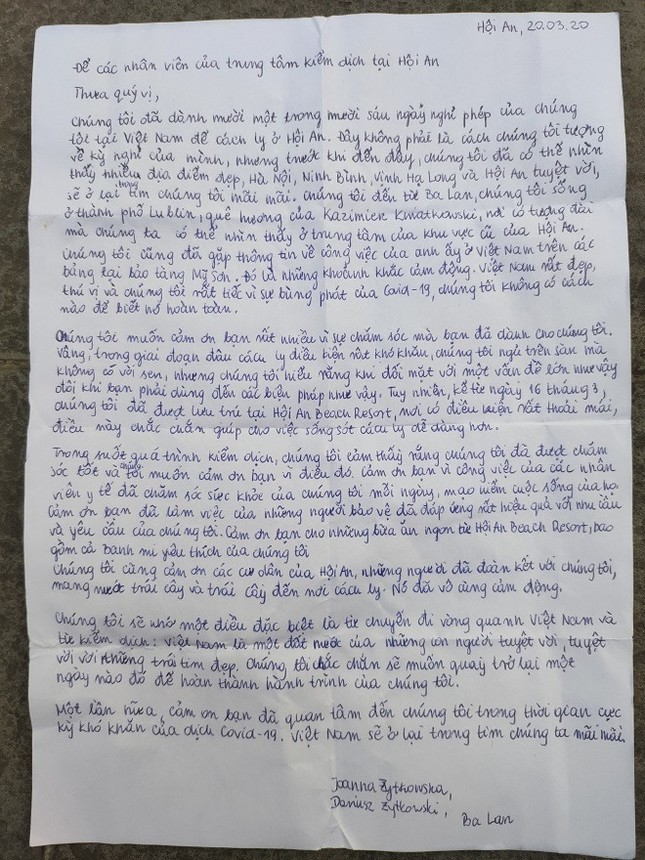 Hội An, 20.03.20
Để các nhân viên của trung tâm kiểm dịch tại Hội An
Thưa quý vị,
Chúng tôi đã dành mười một trong mười sáu ngày nghỉ phép của chúng
tôi tại Việt Nam để cách ly ở Hội An. Đây không phải là cách chúng tôi tượng
về kỳ nghỉ của mình, nhưng trước khi đến đây, chúng tôi đã có thể nhìn
thấy nhiều địa điểm đẹp, Hà Nội, Ninh Bình, Vịnh Hạ Long và Hội An tuyệt vời,
sẽ ở lại trong tim chúng tôi mãi mãi. Chúng tôi đến từ Ba Lan, chúng tôi sống
ở thành phố Lublin, quê hương của Kazimierz Kwiatkowski, nơi có tượng đài
mà chúng ta có thể nhìn thấy ở trung tâm của khu vực cũ của Hội An.
Chúng tôi cũng đã gặp thông tin về công việc của anh ấy ở Việt Nam trên các
bảng tại bảo tàng Mỹ Sơn. Đó là những khoảnh khắc cảm động. Việt Nam rất đẹp,
thú vị và chúng tôi rất tiếc vì sự bùng phát của Covid-19, chúng tôi không có cách
nào để biết nó hoàn toàn.
Chúng tôi muốn cảm ơn bạn rất nhiều vì sự chăm sóc mà bạn đã dành cho chúng tôi.
Vâng, trong giai đoạn đầu cách ly điều kiện rất khó khăn, chúng tôi ngủ trên sàn mà
không có vòi sen, nhưng chúng tôi hiểu rằng khi đối mặt với một vấn đề lớn như vậy
đôi khi bạn phải dùng đến các biện pháp như vậy. Tuy nhiên, kể từ ngày 16 tháng 3,
chúng tôi đã được lưu trú tại Hội An Beach Resort, nơi có điều kiện rất thoải mái,
điều này chắc chắn giúp cho việc sống sót cách ly dễ dàng hơn.
Trong suốt quá trình kiểm dịch, chúng tôi cảm thấy rằng chúng tôi đã được chăm
sóc tốt và chúng tôi muốn cảm ơn bạn vì điều đó. Cảm ơn bạn vì công việc của các nhân
viên y tế đã chăm sóc sức khỏe của chúng tôi mỗi ngày, mạo hiểm cuộc sống của họ.
Cảm ơn bạn đã làm việc của những người bảo vệ đã đáp ứng rất hiệu quả với nhu cầu
và yêu cầu của chúng tôi. Cảm ơn bạn cho những bữa ăn ngon từ Hội An Beach Resort, bao
gồm cả banh mì yêu thích của chúng tôi
Chúng tôi cũng cảm ơn các cư dân của Hội An, những người đã đoàn kết với chúng tôi,
mang nước trái cây và trái cây đến nơi cách ly. Nó đã vô cùng cảm động.
Chúng tôi sẽ nhớ một điều đặc biệt là từ chuyến đi vòng quanh Việt Nam và
từ kiểm dịch: Việt Nam là một đất nước của những con người tuyệt vời, tuyệt
vời với những trái tim đẹp. Chúng tôi chắc chắn sẽ muốn quay trở lại một
ngày nào đó để hoàn thành hành trình của chúng tôi.
Một lần nữa, cảm ơn bạn đã quan tâm đến chúng tôi trong thời gian cực
kỳ khó khăn của dịch Covid-19. Việt Nam sẽ ở lại trong tim chúng ta mãi mãi.
Joanna Żytkowska,
Dariusz Żytkowski,
Ba Lan